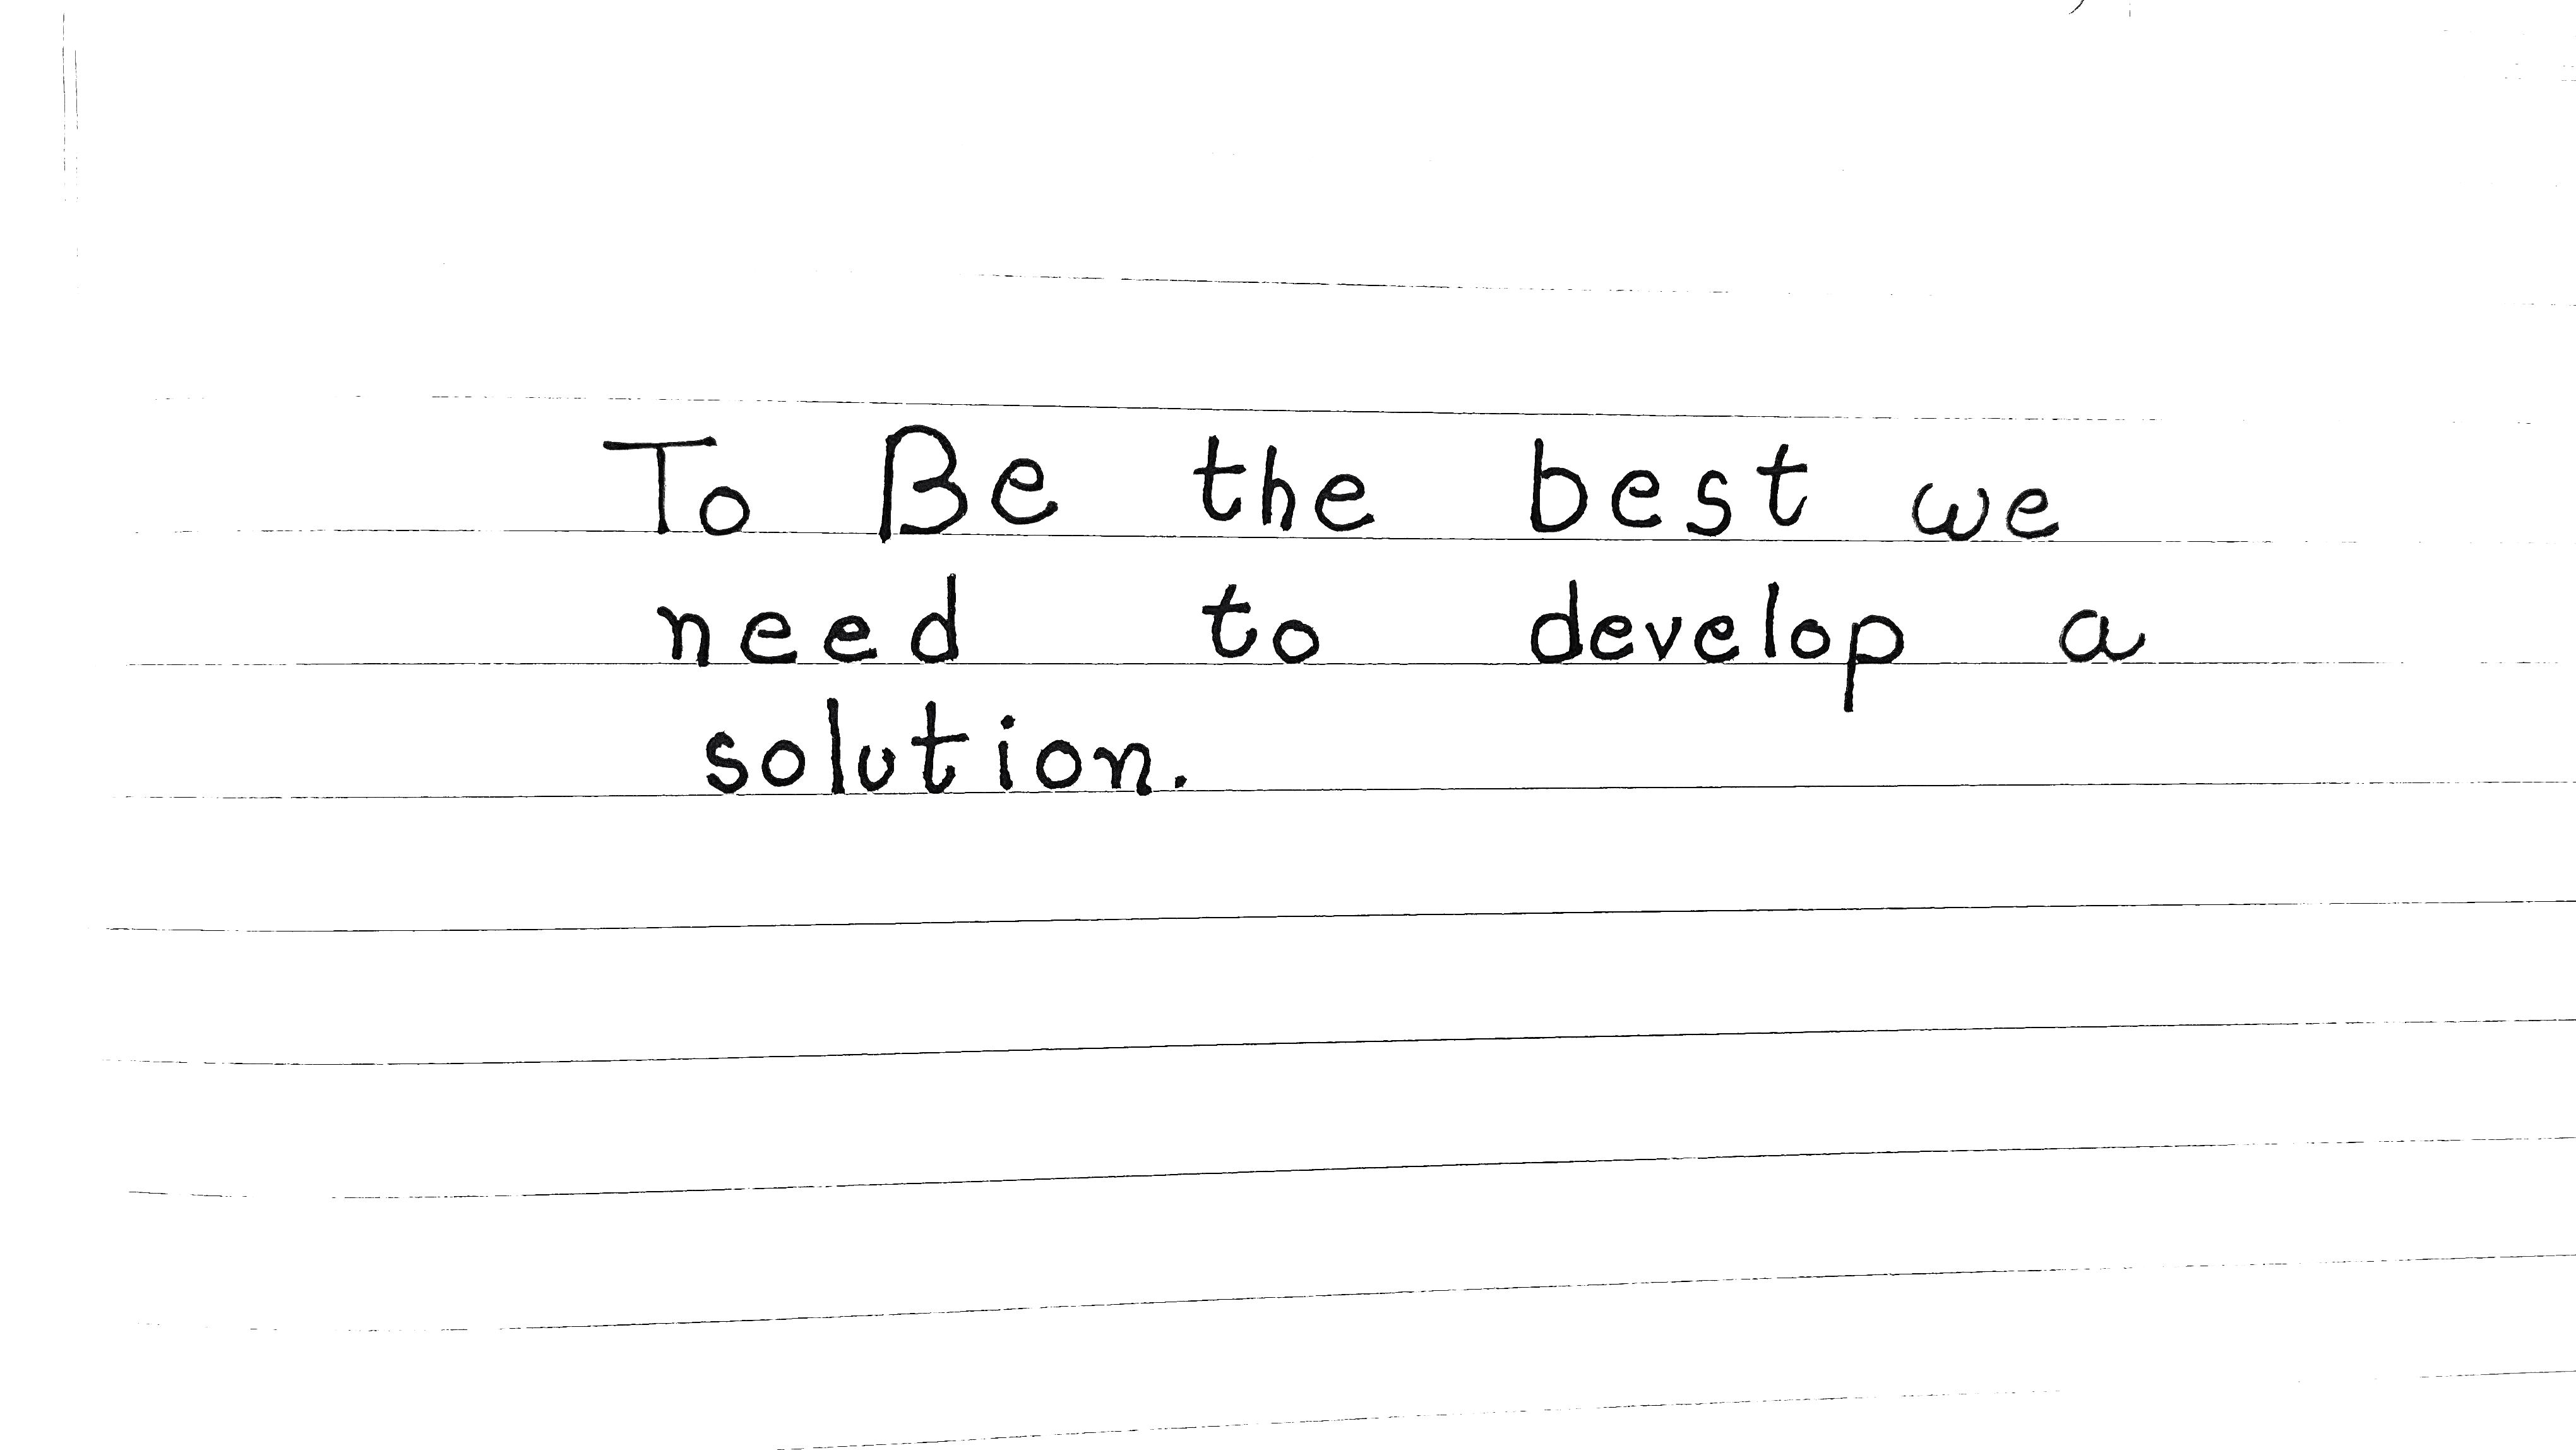 To Be the best we
need to develop a
solution.